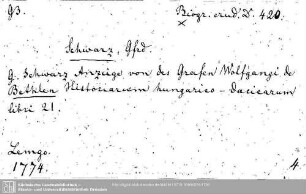 93. Biogr. erud. D. 420.
Schwarz, Gfrd.
G. Schwarz Anzeige von des Grafen Wolfgangi de
Bethlen Historiarum hungarico-dacicarum
libri 21.
Lemgo.
1774. 4.
Sächsische Landesbibliothek -
Staats- und Universitätsbibliothek Dresden